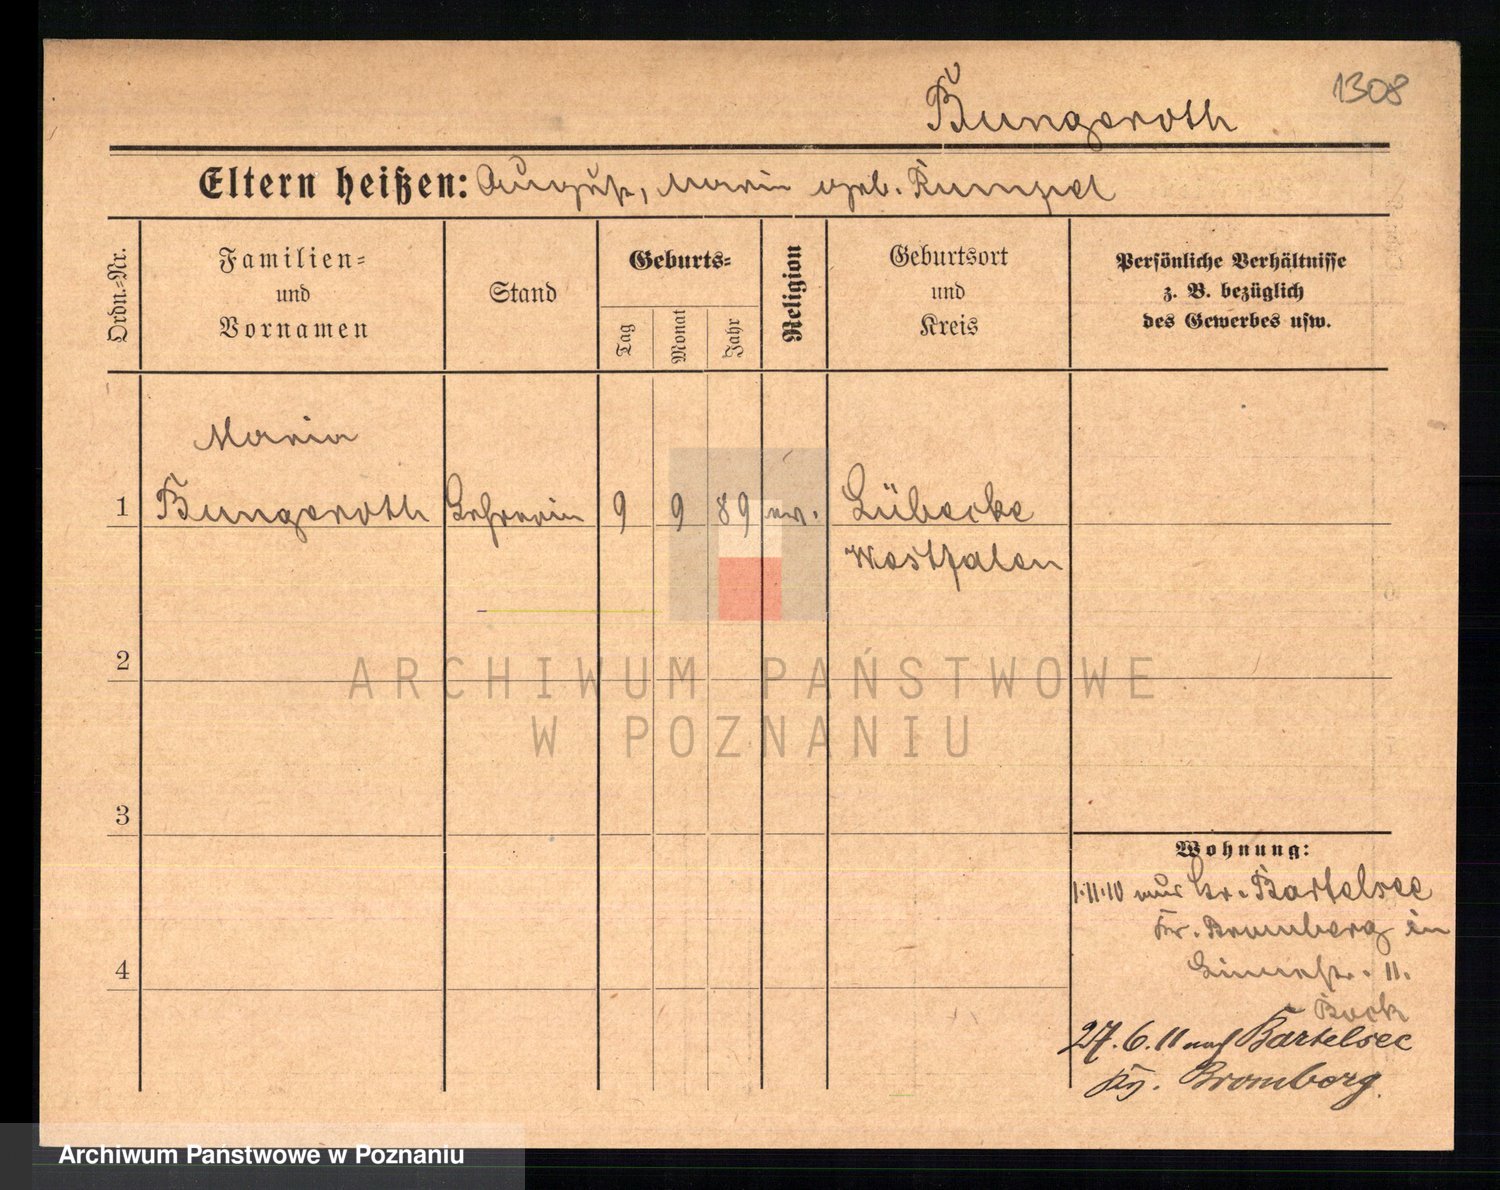 1308
Bungeroth
Eltern heißen: August, Marie geb. Kumpel
Ordn.-Nr.
Familien-
und
Vornamen
Stand
Geburts-
Tag
Monat
Jahr
Religion
Geburtsort
und
Kreis
Persönliche Verhältnisse
z. B. bezüglich
des Gewerbes usw.
Maria
1 Bungeroth Lehrerin 9 9 89 ev. Lübecke
Westfalen
2
3
4
Wohnung:
1.11.10 aus Gr. Bartelsee
Kr. Bromberg in
11.
Bock
27.6.11 nach Bartelsee
Bromberg.
ARCHIWUM PAŃSTWOWE
W POZNANIU
Archiwum Państwowe w Poznaniu